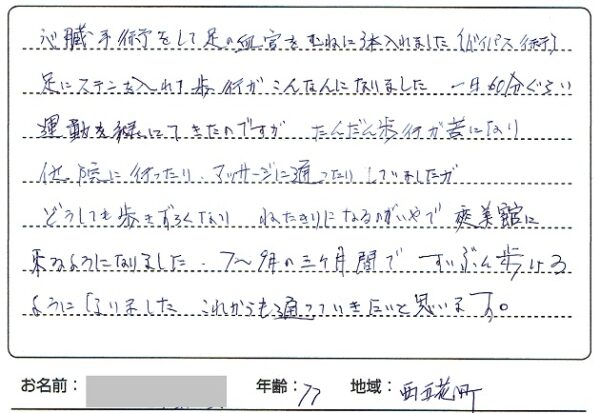 心臓手術をして足の血管をむねに3本入れました(バイパス術)
足にステンを入れて歩行がこんなんになりました 一日60分ぐらい
運動を続にてきたのですが だんだん歩行が苦になり
他院に行ったり、マッサージに通ったりしていましたが
どうしても歩きずらくなり ねたきりになるのがいやで 爽美館に
来るようになりました、7〜9月の三ケ月間で ずいぶん歩ける
ようになりました これからも通っていきたいと思います。
お名前: 年齢:77 地域:西五花町